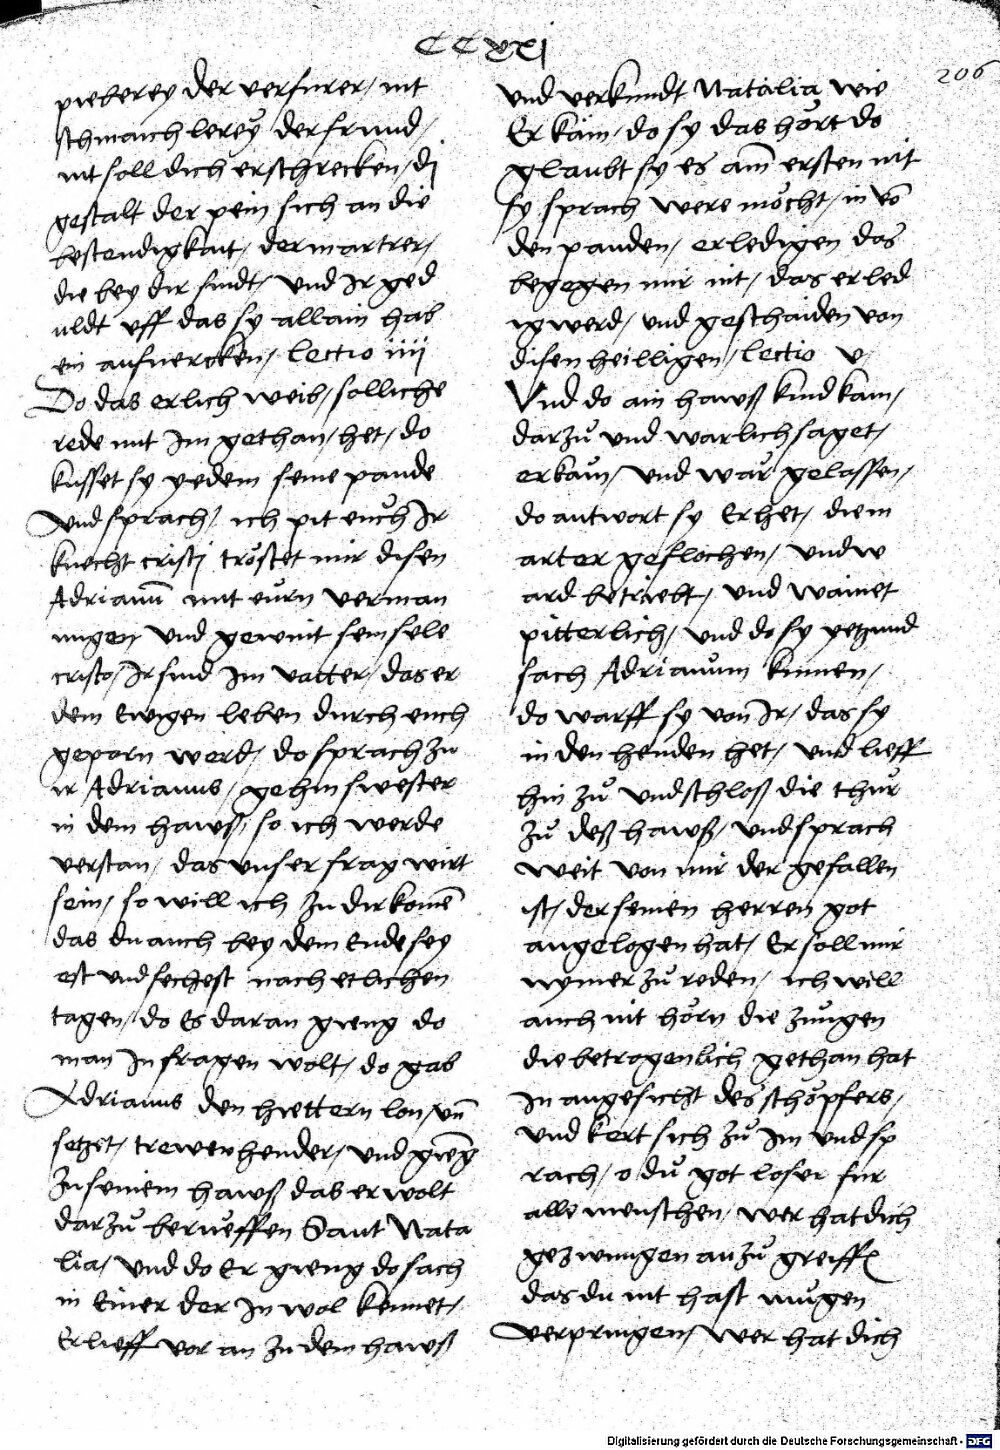 CCxxj
206
pieberey der verfurer / nit
schmaichlerey der frund /
nit soll dich erschrecken / di
gestalt der pein sich an die
bestendigkait / der martrer /
die bey dir sindt / und Ir ged
uldt uff das sy allain hab
ein aufmercken / lectio iiij
Do das erlich weib / solliche
rede mit Im gethan / het / do
kusset sy yedem seine pande
und sprach / ich pit euch Ir
knecht cristj tröstet mir disen
Adrianum mit eurn verman
ungen und gewint sein sele
cristo / Ir sind Im vatter / das er
dem Ewigen leben durch euch
geporn werd / do sprach zu
ir Adrianus / gehin swester
in dem hawß / so ich werde
verstan / das unser frag wirt
sein / so will ich zu dir komē
das du auch bey dem Ende sey
est und sechest nach etlichen
tagen / do Es daran gieng do
man In fragen wolt / do gab
Adrianus den hiettern lon / uñ
setzet / trewenhender / und gieng
zu seinem hawß das er wolt
darzu berueffen Sant Nata
lia / und do Er gieng do sach
in Einer der In wol kennet /
Er lieff vor an zu dem hawß
und verkundt Natalia wie
Er käm / do sy das hört do
glaubt sy es am ersten nit
sy sprach were möcht / in võ
den panden / erledigen das
begegen mir nit / das er led
ig werd / und geschaiden von
disen heilligen / lectio v /
Und do ain hawß kind kam /
darzu und warlich saget /
er kam / und wär gelassen /
do antwort sy Er het / die m
arter geflochen / und w
ard betriebt / und wainet
pitterlich / und do sy yetzund
sach Adrianum kumen /
do warff sy von Ir / das sy
in den henden het / und lieff
hin zu und schloß die thur
zu deß hawß / und sprach
weit von mir der gefallen
ist / der seinen herren got
angelogen hat / Er soll mir
nymer zu reden / ich will
auch nit hörn die zungen
die betrogenlich gethan hat
In angesicht des schöpfers /
und kert sich zu Im und sp
rach / o du got loser fur
alle menschen / wer hat dich
gezwungen an zu greiffē
das du nit hast mugen
verpringen / wer hat dich
Digitalisierung gefördert durch die Deutsche Forschungsgemeinschaft - DFG